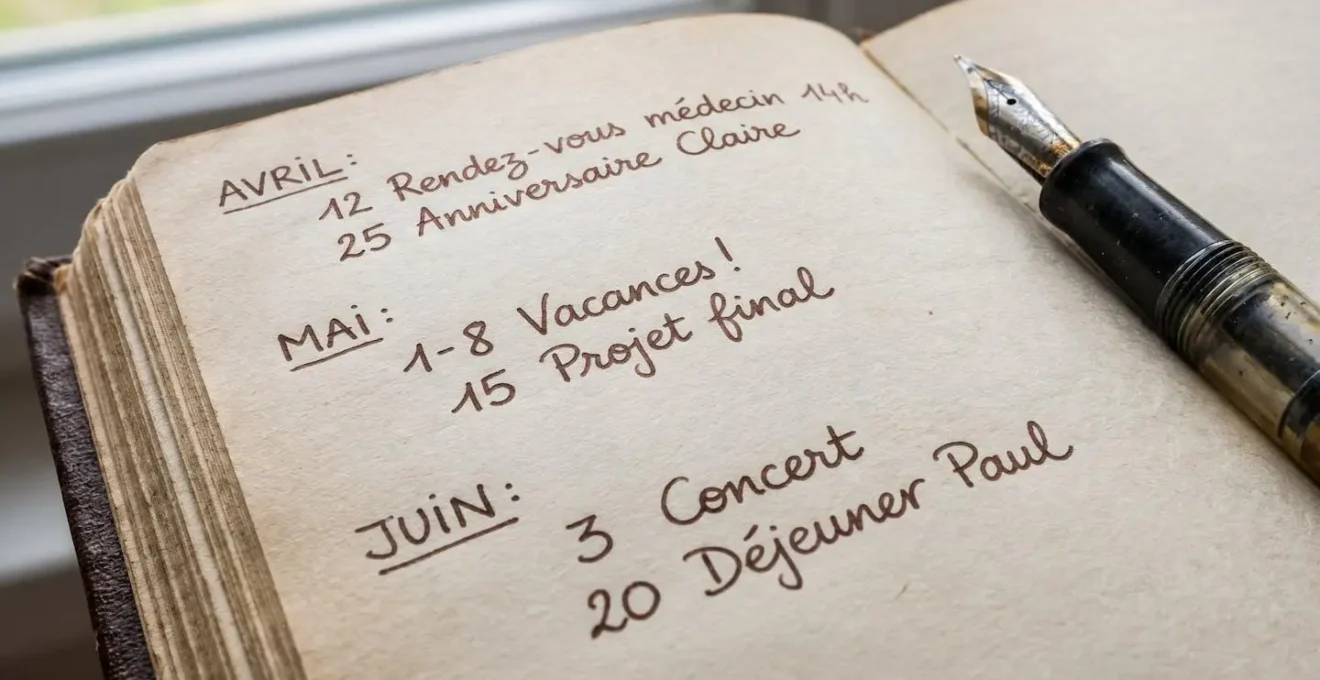 AVRiL:
12 Rendez-vous médecin 14h
25 Anniversaire Claire
MAi:
1-8 Vacances!
15 Projet final
JUiN:
3 Concert
20 Déjeuner Paul